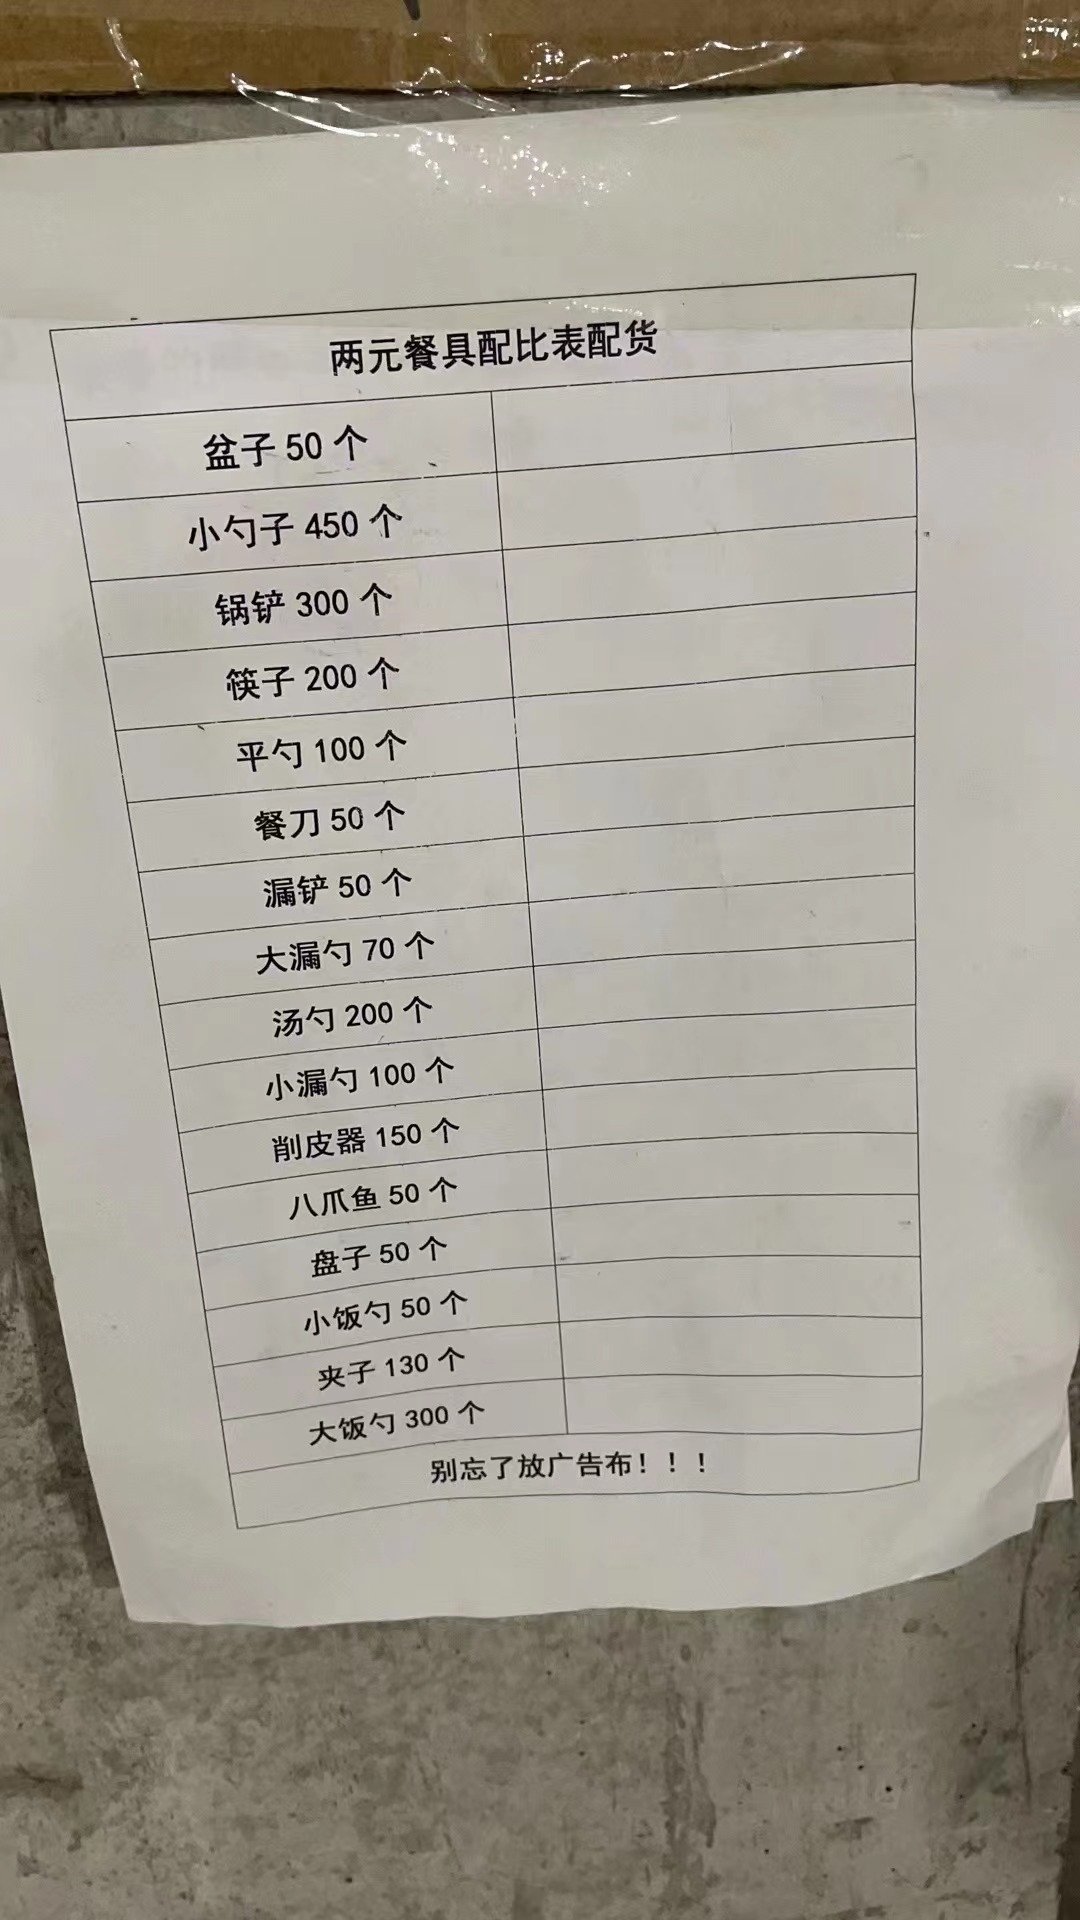 两元餐具配比表配货
盆子 50 个
小勺子 450 个
锅铲 300 个
筷子 200 个
平勺 100 个
餐刀 50 个
漏铲 50 个
大漏勺 70 个
汤勺 200 个
小漏勺 100 个
削皮器 150 个
八爪鱼 50 个
盘子 50 个
小饭勺 50 个
夹子 130 个
大饭勺 300 个
别忘了放广告布！！！